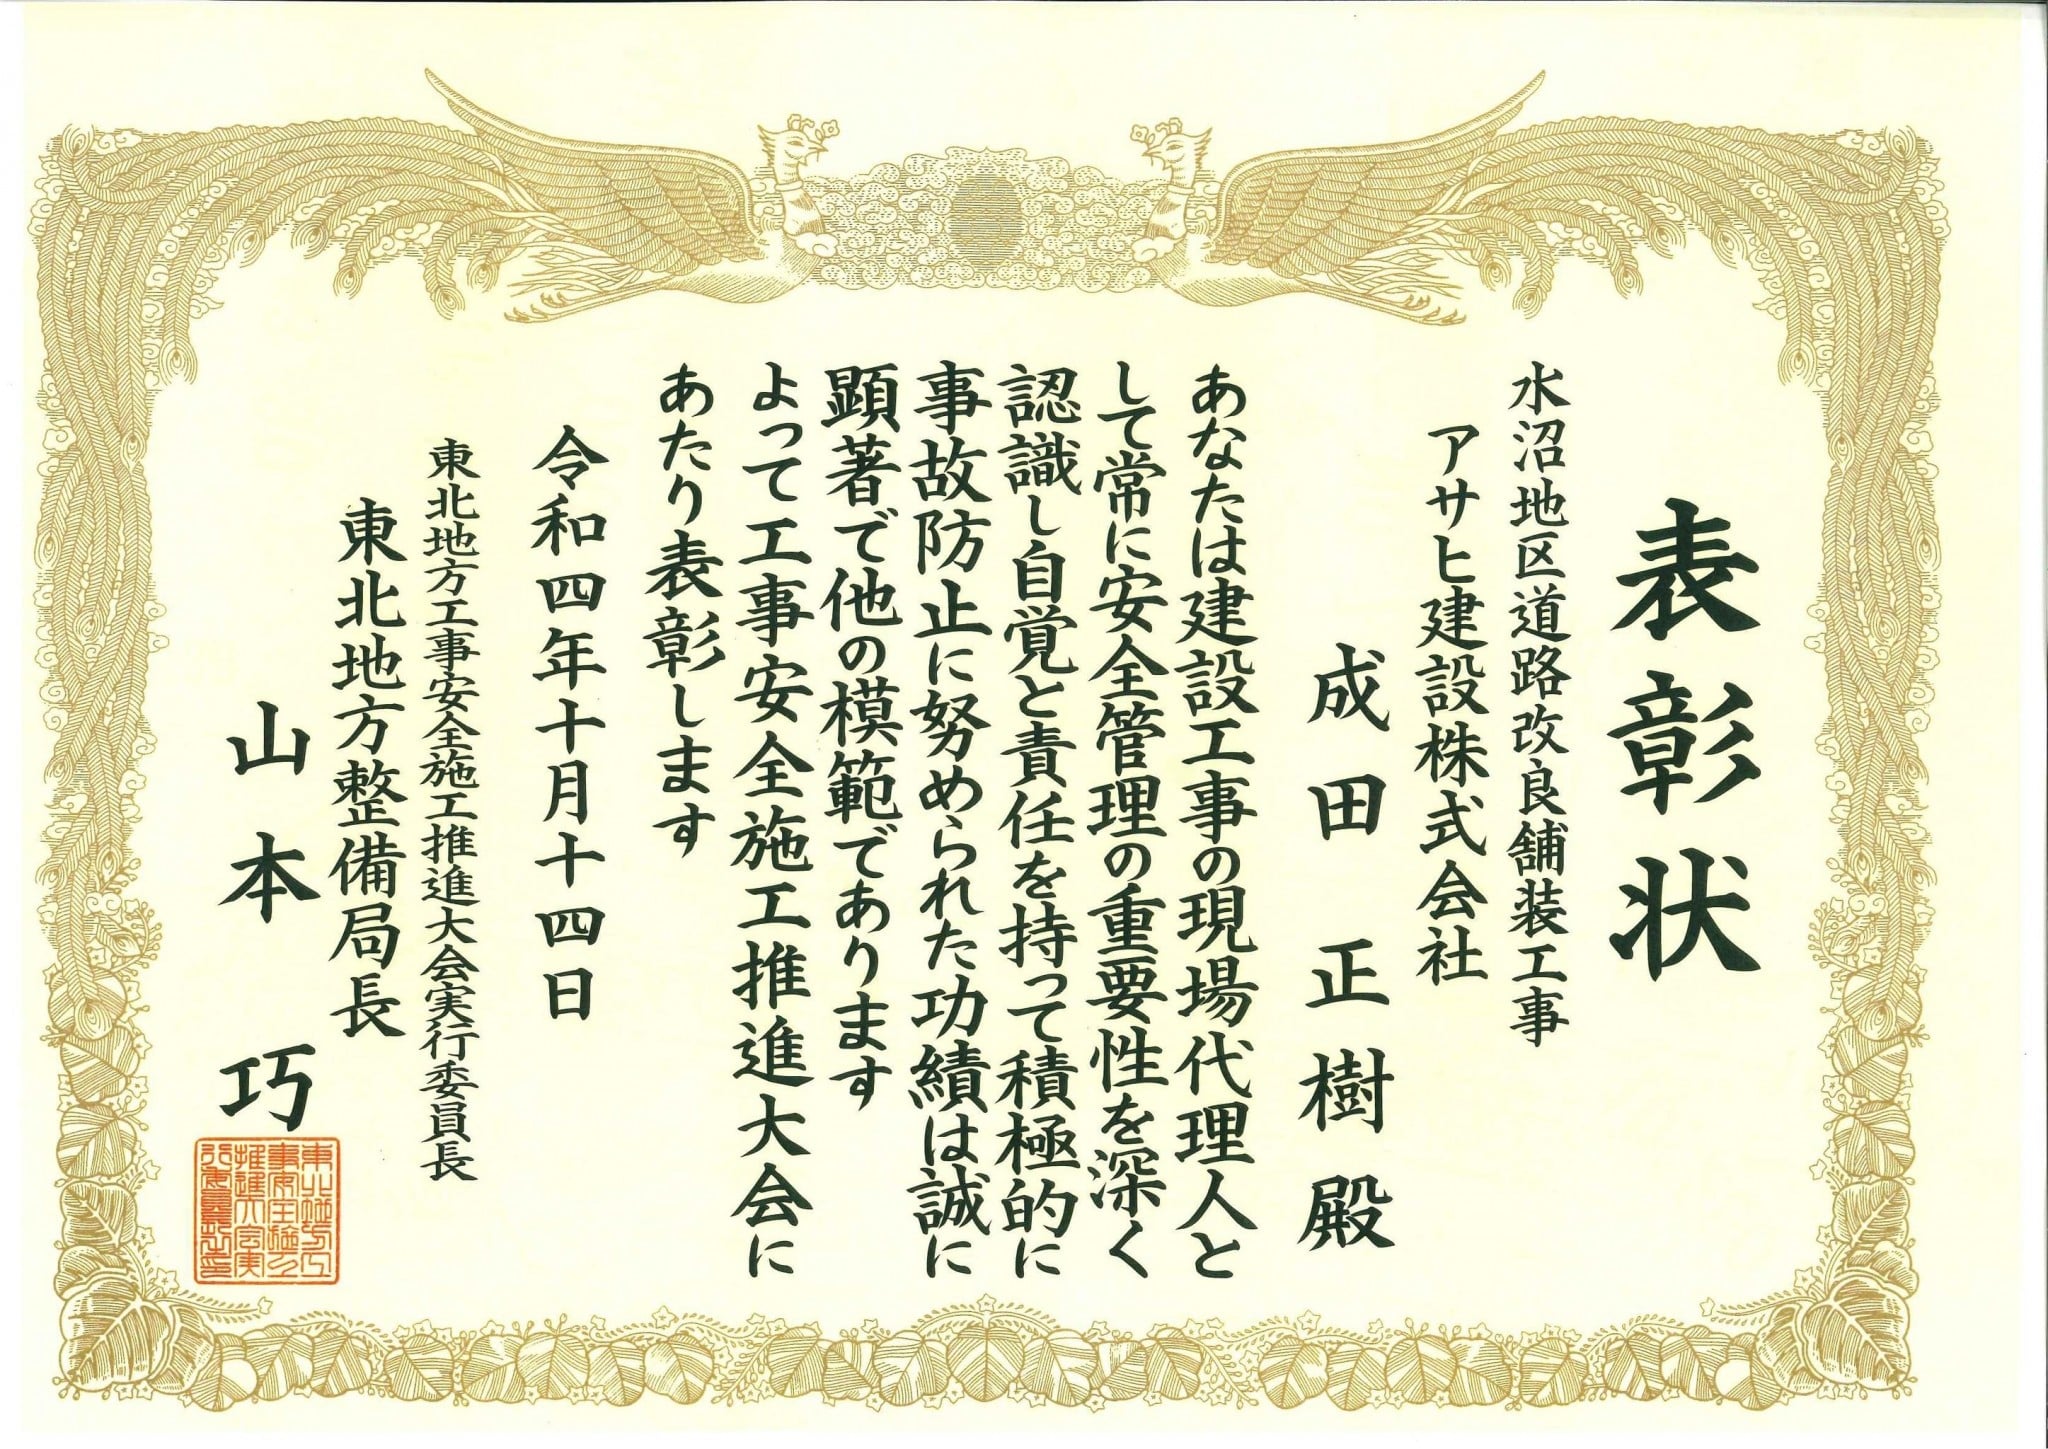 表彰状
水沼地区道路改良舗装工事
アサヒ建設株式会社
成田正樹殿
あなたは建設工事の現場代理人と
して常に安全管理の重要性を深く
認識し自覚と責任を持って積極的に
事故防止に努められた功績は誠に
顕著で他の模範であります
よって工事安全施工推進大会に
あたり表彰します
令和四年十月十四日
東北地方工事安全施工推進大会実行委員長
東北地方整備局長
山本巧
東北地方工
事安全施工
推進大会実
行委員長之印